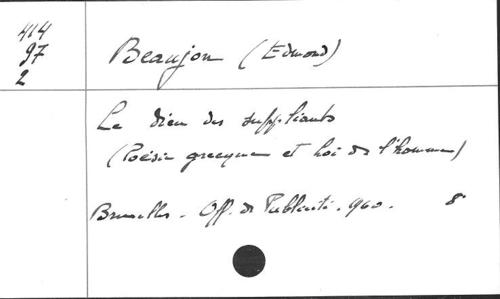 414
97
2
Beaujon (Edmond)
Le dieu des suppliants
(Poésie grecque et loi de l'homme)
Bruxelles. Off. de Publicité. 960. 8°